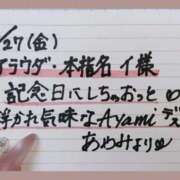 /27(金)
ラウダ・本指名 イ様
記念日にしちゃおっと
浮かれ気味なAyamiデス
あやみより